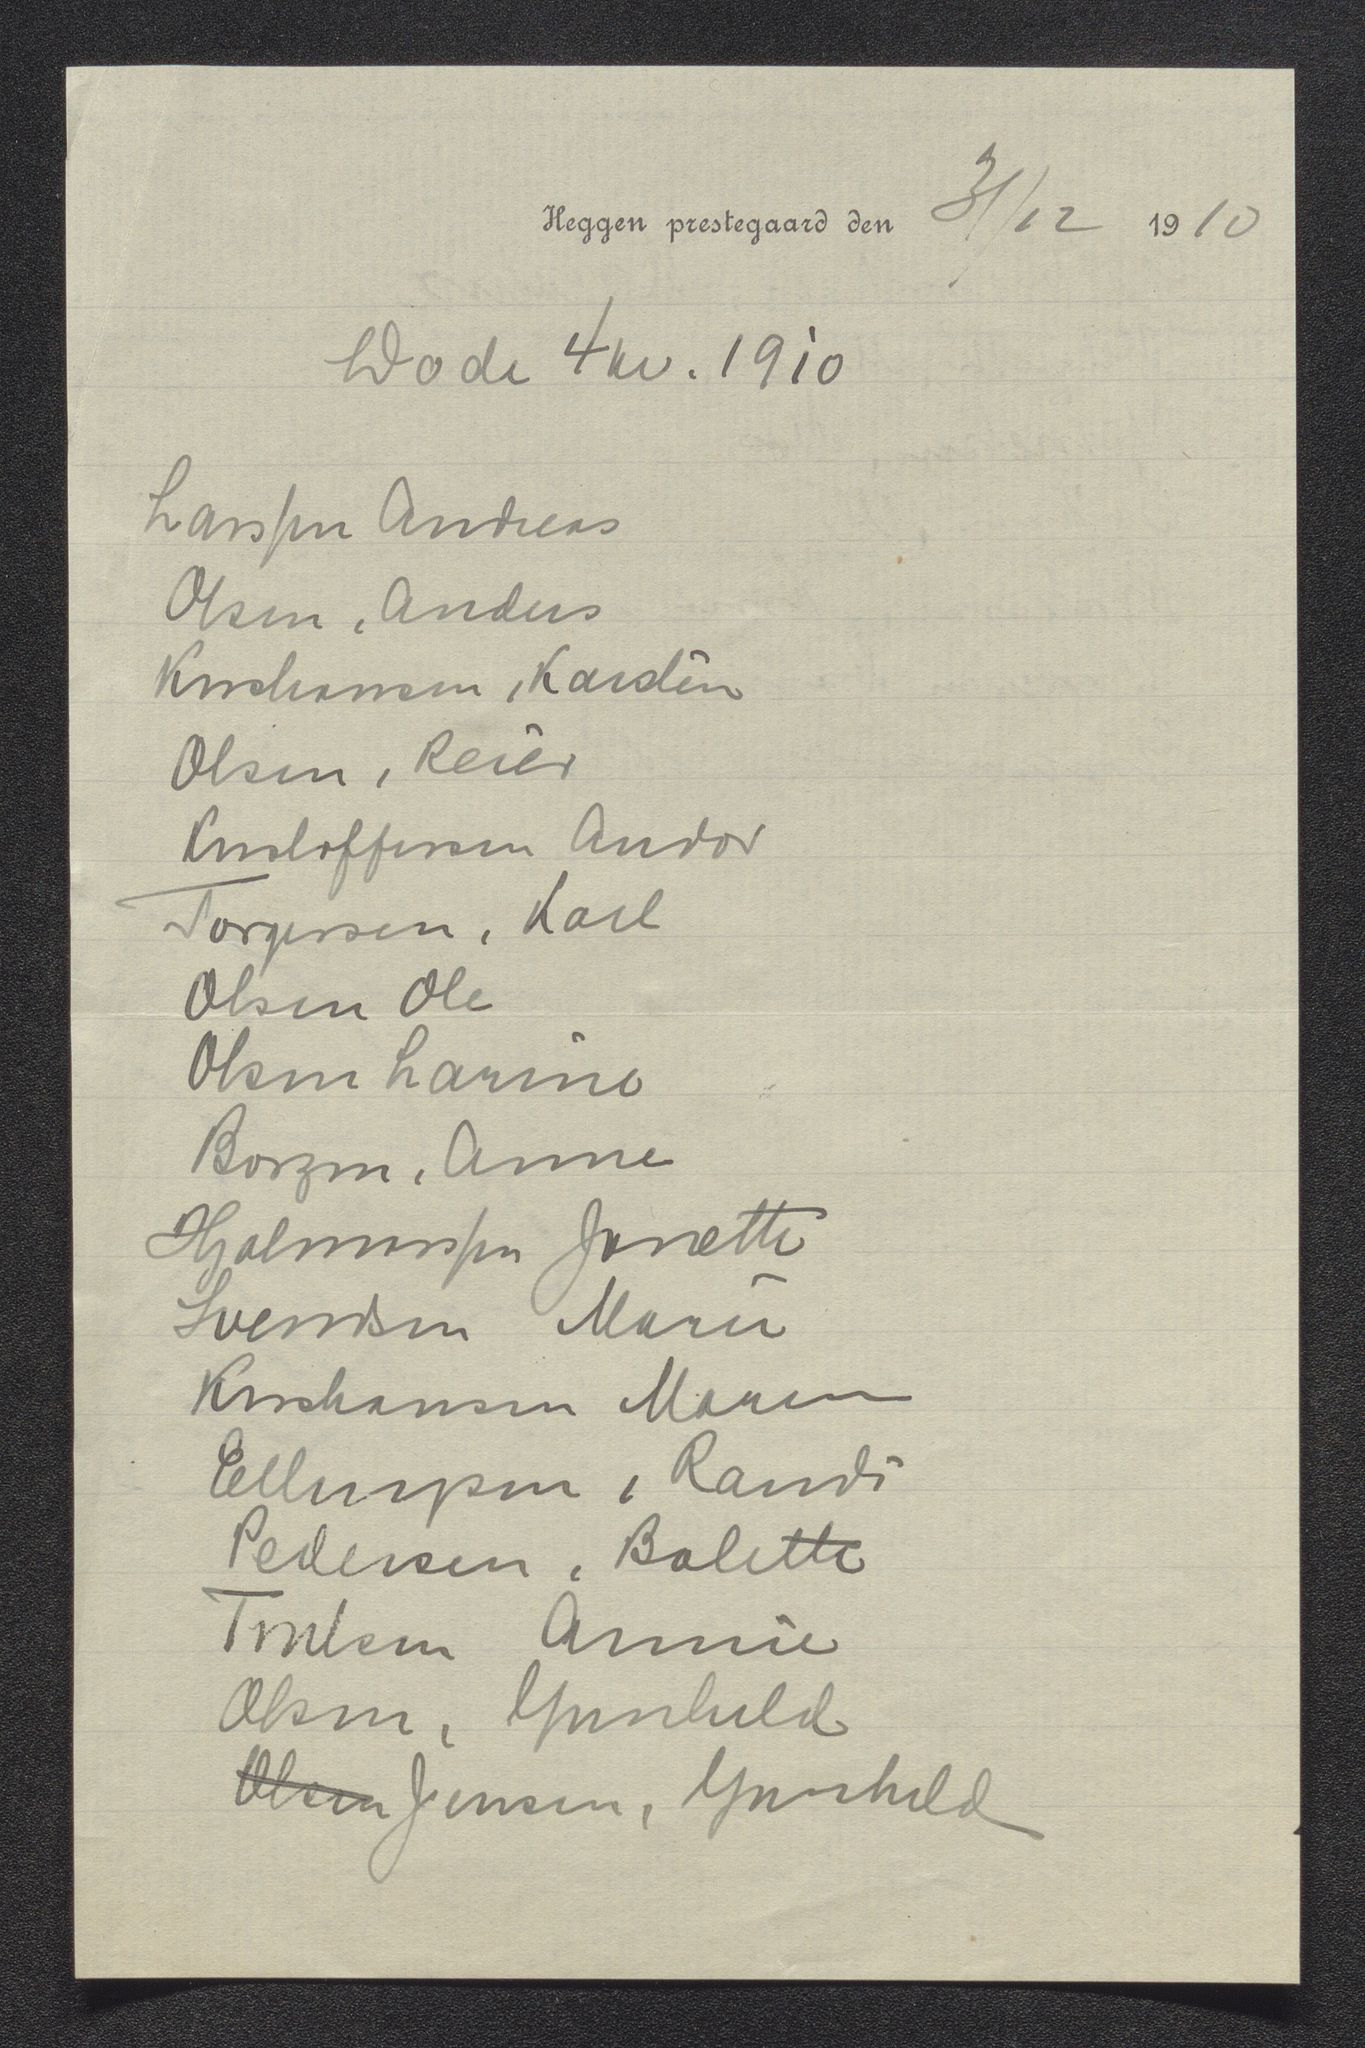 Heggen prestegaard den 31/12 1910
Döde 4 kv. 1910
Larssen Andreas
Olsen, Anders
Kristiansen, Karstin
Olsen, Reier
Kristoffersen Andor
Torgersen, Karl
Olsen Ole
Olsen Larine
Borgen, Anne
Hjalmarssen Janette
Svendsen Marie
Kristiansen Maren
Ellingsen, Randi
Pedersen, Bolette
Troelsen Annie
Olsen, Gunhild
Olsen Jensen, Gunhild